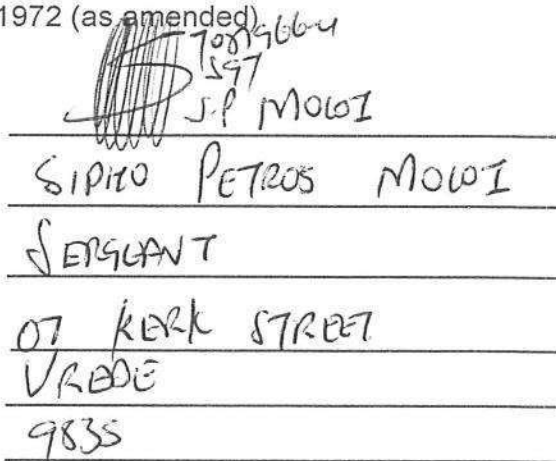 1972 (as amended)
SGT
S.P MOLOI
SIPHO PETROS MOLOI
SERGEANT
07 KERK STREET
VREDE
9835